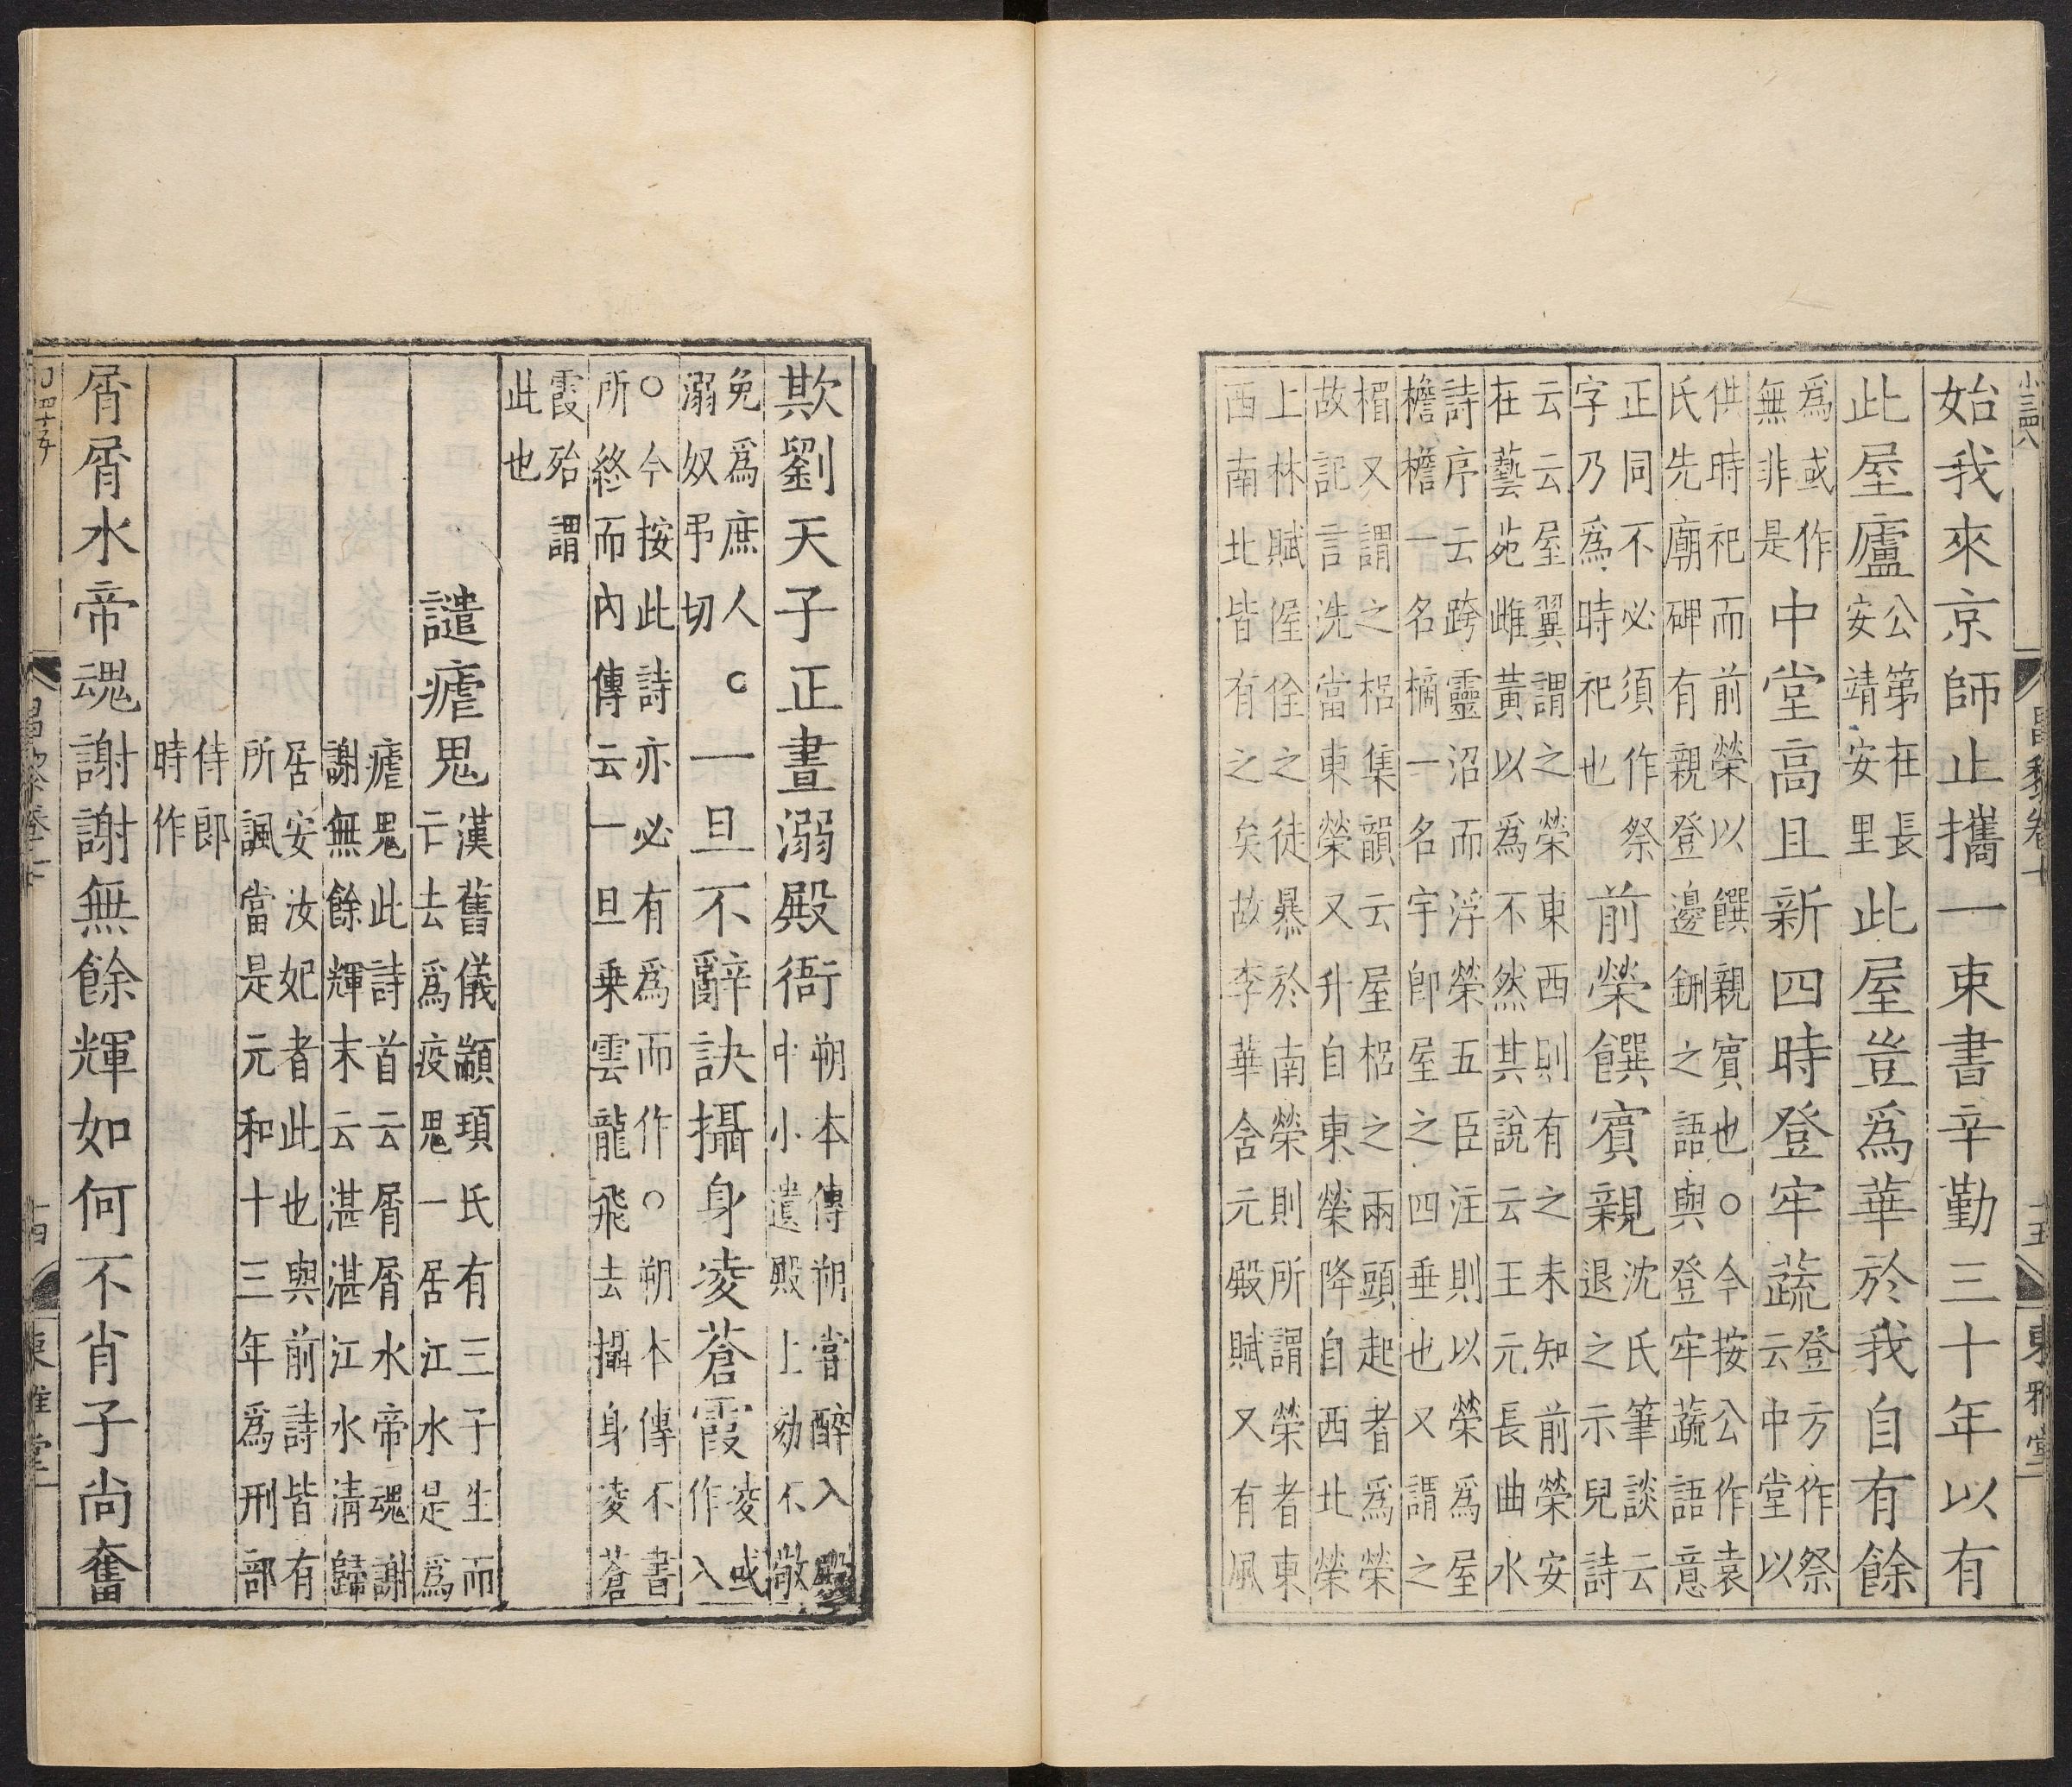 昌黎卷七
東雅堂
始我來京師止攜一束書辛勤三十年以有
此屋廬公第在長安靖安里此屋豈爲華於我自有餘
爲或作無非是中堂高且新四時登牢蔬登方作祭云中堂以
供時祀而前榮以饌親賓也○今按公作袁
氏先廟碑有親登邊鉶之語與登牢蔬語意
正同不必須作祭字乃爲時祀也前榮饌賓親沈氏筆談云退之示兒詩
云云屋翼謂之榮東西則有之未知前榮安
在藝苑雌黃以爲不然其說云王元長曲水
詩序云跨靈沼而浮榮五臣注則以榮爲屋
檐檐一名樀一名宇卽屋之四垂也又謂之
楣又謂之梠集韻云屋梠之兩頭起者爲榮
故記言洗當東榮又升自東榮降自西北榮
上林賦偓佺之徒暴於南榮則所謂榮者東
西南北皆有之矣故李華含元殿賦又有風
欺劉天子正晝溺殿衙朔本傳朔嘗醉入殿中小遺殿上劾不敬
免爲庶人○溺奴弔切一旦不辭訣攝身凌蒼霞凌或作入
○今按此詩亦必有爲而作○朔本傳不書
所終而內傳云一旦乗雲龍飛去攝身凌蒼
霞殆謂此也
譴瘧鬼漢舊儀顓頊氏有三子生而亡去爲疫鬼一居江水是爲
瘧鬼此詩首云屑屑水帝魂謝
謝無餘輝末云湛湛江水清歸
居安汝妃者此也與前詩皆有
所諷當是元和十三年爲刑部
侍郎時作
屑屑水帝魂謝謝無餘輝如何不肖子尚奮
昌黎卷七
十四
東雅堂